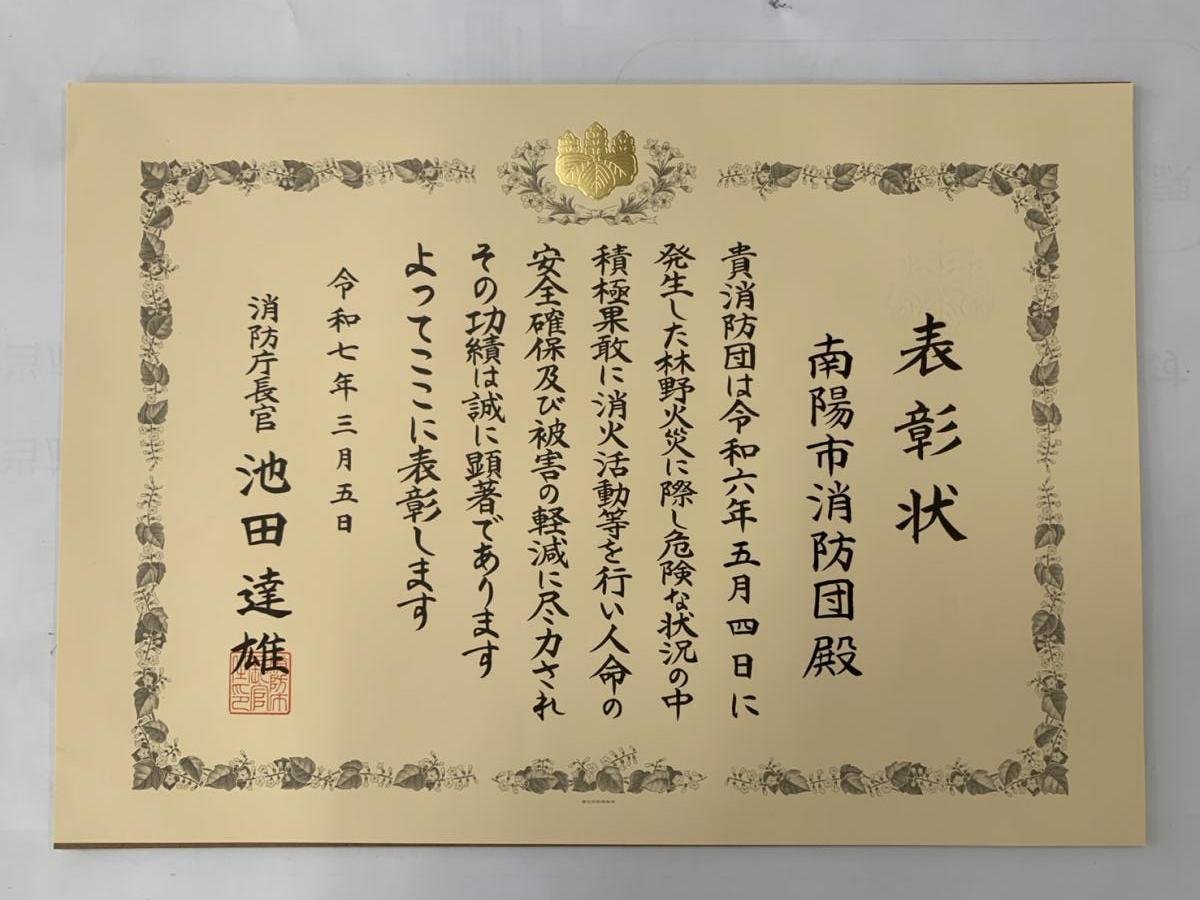 表彰状
南陽市消防団殿
貴消防団は令和六年五月四日に
発生した林野火災に際し危険な状況の中
積極果敢に消火活動等を行い人命の
安全確保及び被害の軽減に尽力され
その功績は誠に顕著であります
よってここに表彰します
令和七年三月五日
消防庁長官 池田達雄